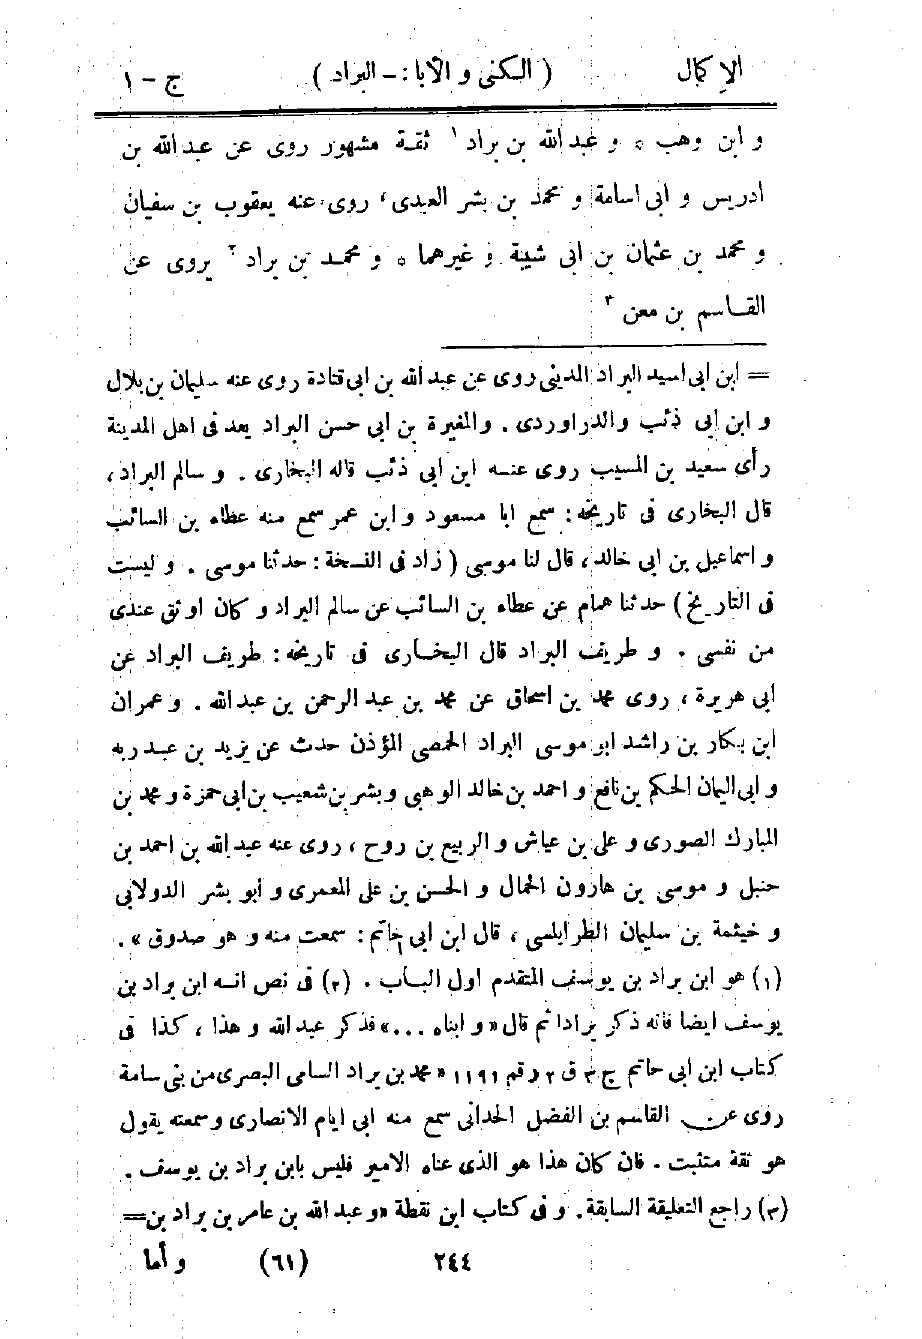 الإكمال ( الكنى و الآباء: - البراد ) ج - ١
و ابن وهب ٥ و عبد الله بن براد ١ ثقة مشهور روى عن عبد الله بن
ادريس و ابى اسامة و محمد بن بشر العبدى، روى عنه يعقوب بن سفيان
و محمد بن عثمان بن ابى شيبة و غيرهما ٥ و محمد بن براد ٢ يروى عن
القاسم بن معن ٣
= ابن ابى اسيد البراد المدينى روى عن عبد الله بن ابى قتادة روى عنه سليمان بن بلال
و ابن ابى ذئب والدراوردى . والمغيرة بن ابى حسن البراد يعد فى اهل المدينة
رأى سعيد بن المسيب روى عنه ابن ابى ذئب قاله البخارى . و سالم البراد،
قال البخارى فى تاريخه : سمع ابا مسعود و ابن عمر سمع منه عطاء بن السائب
و اسماعيل بن ابى خالد، قال لنا موسى ( زاد فى النسخة : حدثنا موسى . و ليست
فى التاريخ) حدثنا همام عن عطاء بن السائب عن سالم البراد و كان اوثق عندى
من نفسى . و طريف البراد قال البخارى فى تاريخه : طريف البراد عن
ابى هريرة ، روى محمد بن اسحاق عن محمد بن عبد الرحمن بن عبد الله . و عمران
ابن بكار بن راشد ابو موسى البراد الحمصى المؤذن حدث عن يزيد بن عبد ربه
و ابى اليمان الحكم بن نافع و احمد بن خالد الوهبى و بشر بن شعيب بن ابى حمزة و محمد بن
المبارك الصورى و على بن عياش و الربيع بن روح ، روى عنه عبد الله بن احمد بن
حنبل و موسى بن هارون الحمال و الحسن بن على المعمرى و أبو بشر الدولابى
و خيثمة بن سليمان الطرابلسى ، قال ابن ابى حاتم : سمعت منه و هو صدوق » .
(١) هو ابن براد بن يوسف المتقدم اول الباب . (٢) فى نص انه ابن براد بن
يوسف ايضا فانه ذكر برادا ثم قال « و ابناه ...» فذكر عبد الله و هذا ، كذا فى
كتاب ابن ابى حاتم ج ٣ ق ٢ رقم ١١٩١ « محمد بن براد السامى البصرى من بنى سامة
روى عن القاسم بن الفضل الحدانى سمع منه ابى ايام الانصارى و سمعته يقول
هو ثقة متثبت . فان كان هذا هو الذى عناه الامير فليس بابن براد بن يوسف .
(٣) راجع التعليقة السابقة. و فى كتاب ابن نقطة «و عبد الله بن عامر بن براد بن =
٢٤٤ (٦١) و أما